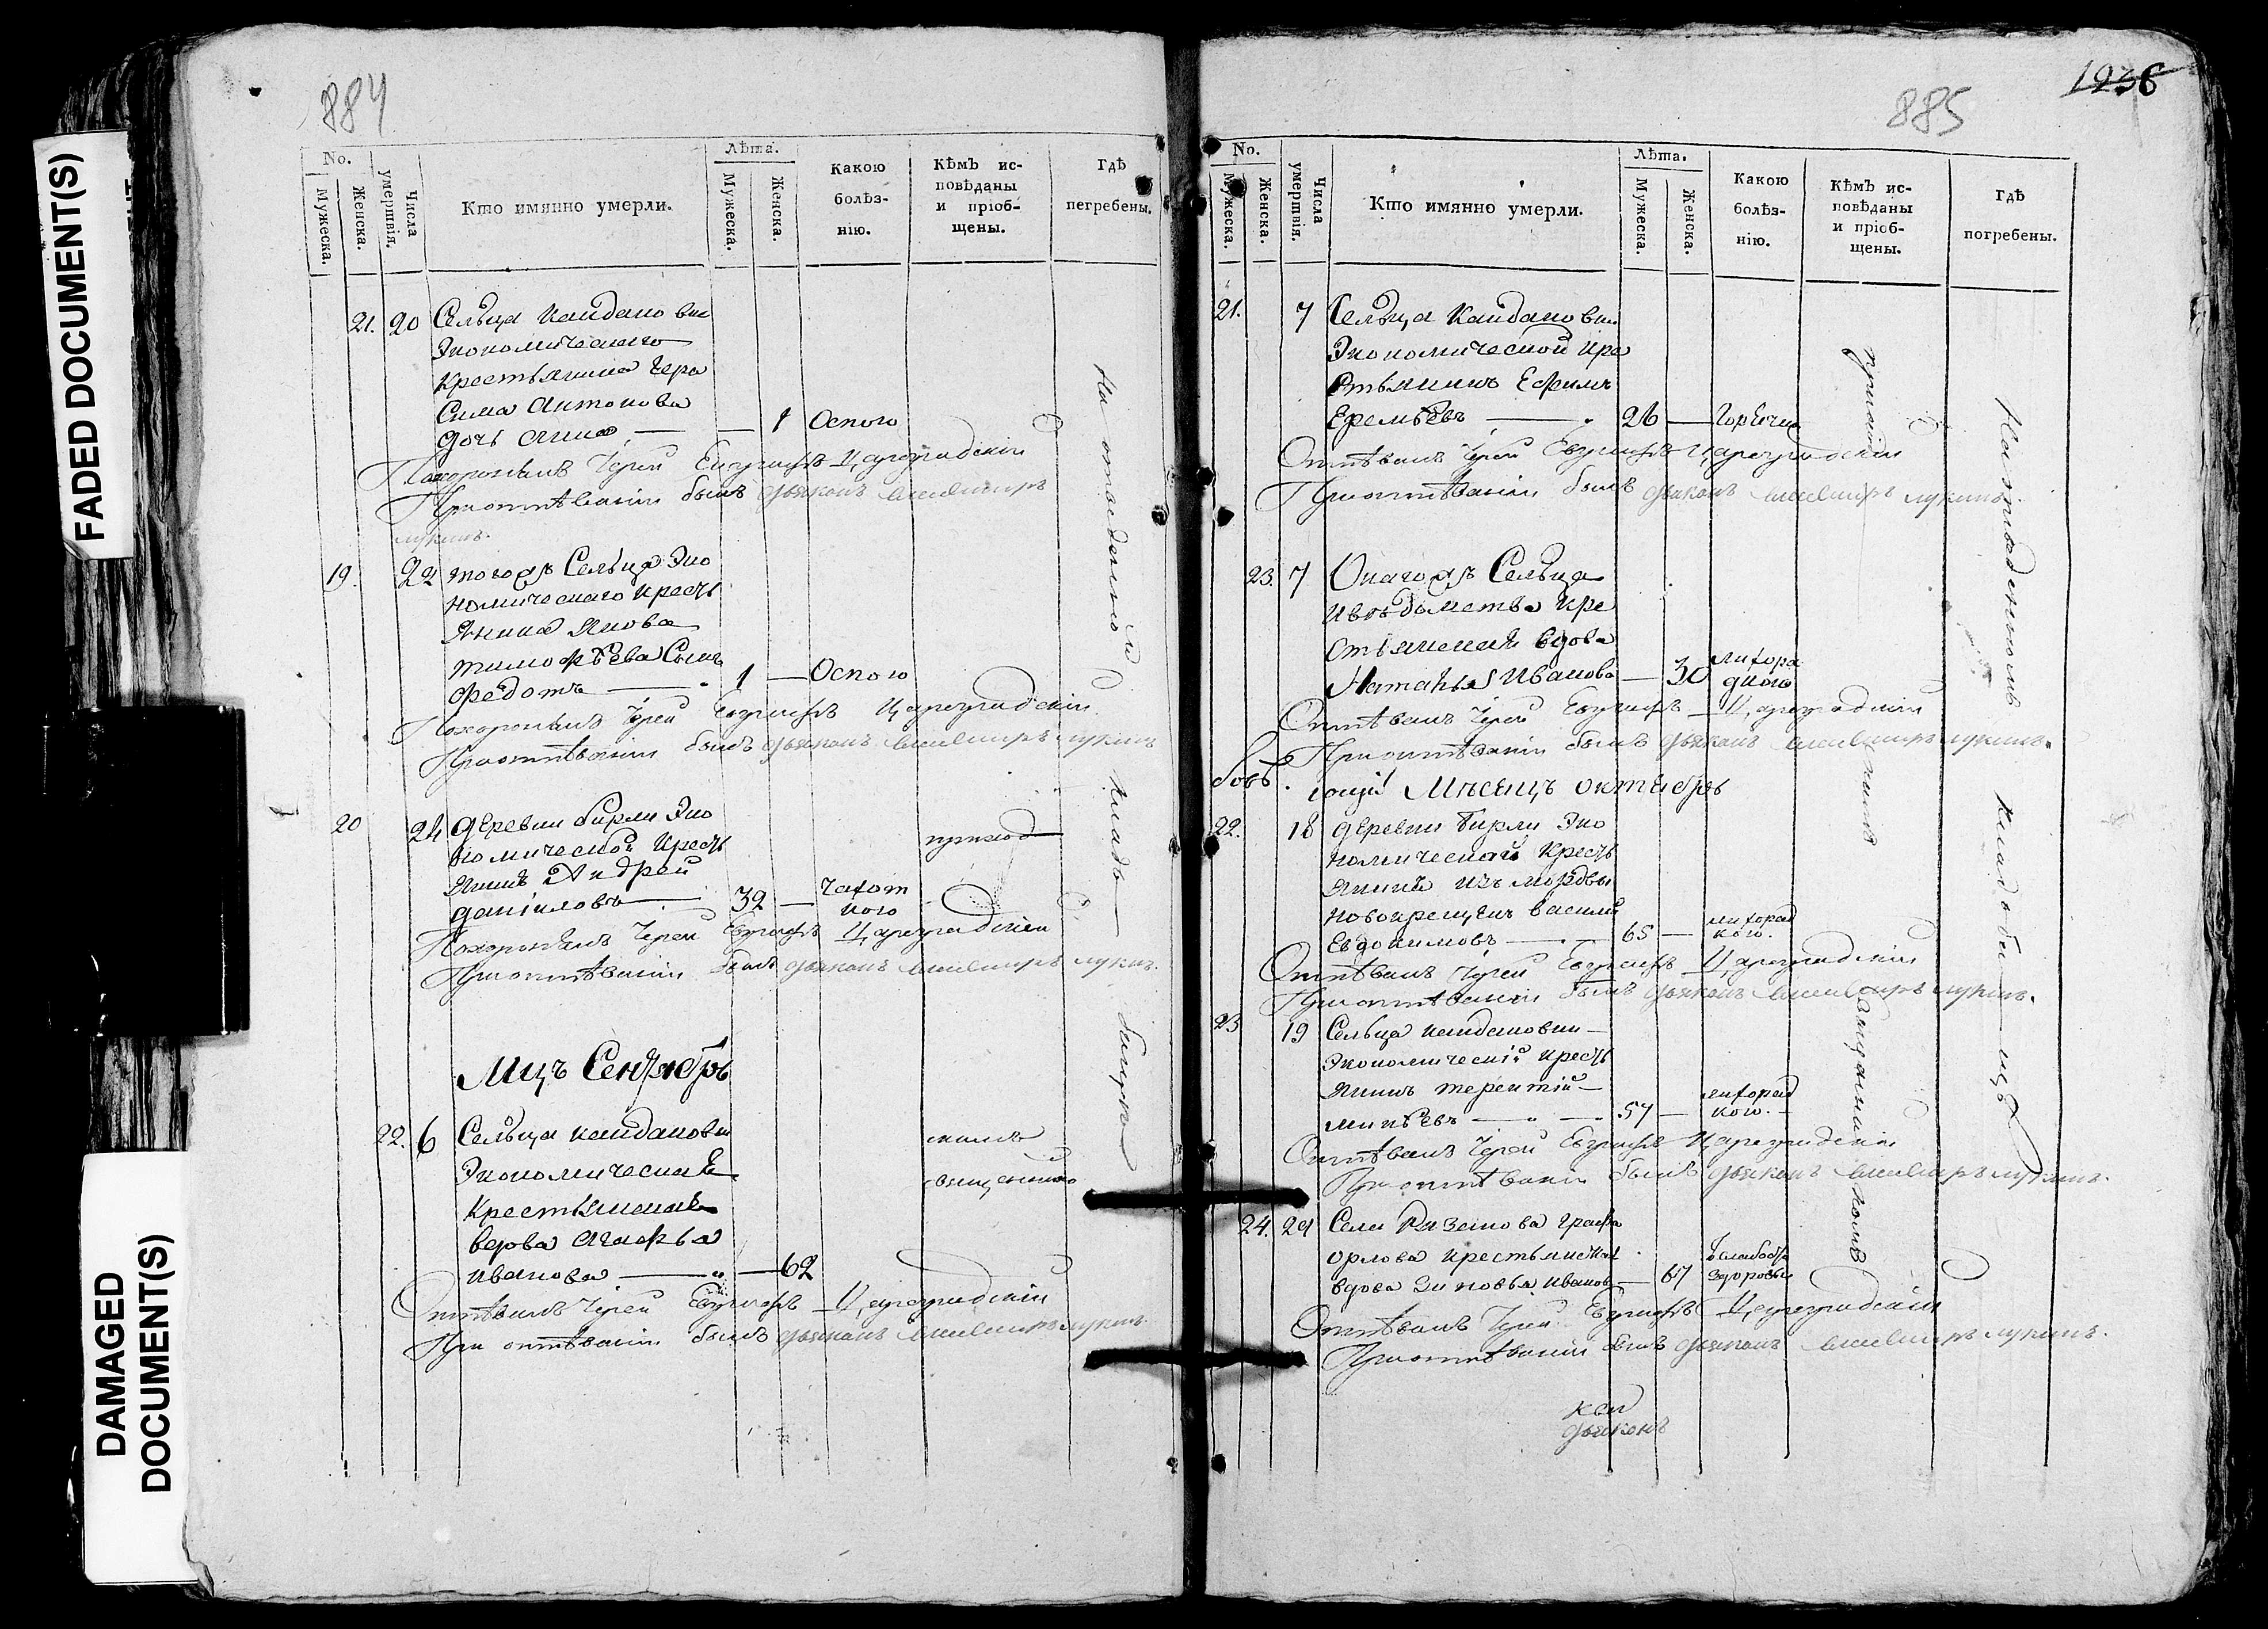 FADED DOCUMENT(S)
DAMAGED
DOCUMENT(S)
884
No.
Мужеска.
Женска.
Числа
умершвія.
Кто имянно умерли.
Лѣта.
Мужеска.
Женска.
Какою
болѣз-
нію.
Кѣмъ ис-
повѣданы
и пріоб-
щены.
Гдѣ
пегребены.
21. 20 Сельца Кайданова
Экономическаго
Крестьянина Гера
Сима Антонова
дочь Анна — — 1 Оспою
Похоронялъ Іерей Евграфъ Цареградскій
При отпѣваніи былъ дьяконъ лукинъ.
19. 22 тогожъ Сельца Эко
номическаго кресть
Янина Якова
тимофѣева Сынъ
федотъ — 1 — Оспою
Похоронялъ Іерей Евграфъ Цареградскій
При отпѣваніи былъ дьяконъ лукинъ
20 24 деревни бирли Эко
номической кресть
янинъ Андрей
даніиловъ — 32 — Чахот
кою
приход
Похоронялъ Іерей Евграфъ Цареградскій
При отпѣваніи былъ дьяконъ лукинъ.
Мцъ Сентябрь
22. 6 Сельца кайданова
Экономическая
Крестьянская
вдова Агафья
иванова — — 62
скимъ
священникомъ
Отпѣвалъ Іерей Евграфъ Цареградскій
При отпѣваніи былъ дьяконъ лукинъ.
На отведенномъ кладбищѣ
885
1236
No.
Мужеска.
Женска.
Числа
умершвія.
Кто имянно умерли.
Лѣта.
Мужеска.
Женска.
Какою
болѣз-
нію.
Кѣмъ ис-
повѣданы
и пріоб-
щены.
Гдѣ
погребены.
21. 7 Сельца Кайданова
Экономической кре
стьянинъ Ефимъ
Еремѣевъ — 26 — Горячко
Отпѣвалъ Іерей Евграфъ Цареградскій
При отпѣваніи былъ дьяконъ лукинъ
23. 7 Онагожъ Сельца
кре
стьянская вдова
Наталья Иванова — 30 лихора
дкою
Отпѣвалъ Іерей Евграфъ Цареградскій
При отпѣваніи былъ дьяконъ лукинъ.
Мѣсяцъ октябрь
22. 18 деревни Бирли Эко
номической кресть
янинъ изъ мордвы
новокрещенъ василій
Евдокимовъ — 65 — лихорад
кою.
Отпѣвалъ Іерей Евграфъ Цареградскій
При отпѣваніи былъ дьяконъ лукинъ.
23 19 Сельца кайдановки
Экономическій кресть
янинъ терентій
минѣевъ — 57 — лихорад
кою.
Отпѣвалъ Іерей Евграфъ Цареградскій
При отпѣваніи былъ дьяконъ лукинъ.
24. 29 Села Рязанова графа
орлова крестьянская
вдова Зиновья иванова — 67
здоровья
Отпѣвалъ Іерей Евграфъ Цареградскій
При отпѣваніи былъ дьяконъ лукинъ.
На отведенномъ кладбищѣ
дьяконъ